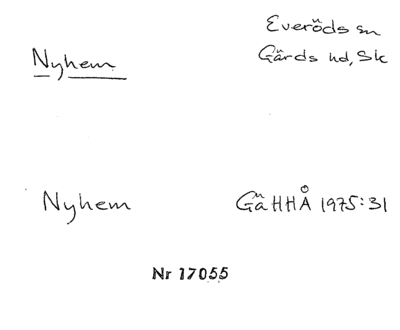 Nyhem
Everöds sn
Gärds hd, Sk
Nyhem
GäHHÅ 1975:31
Nr 17055